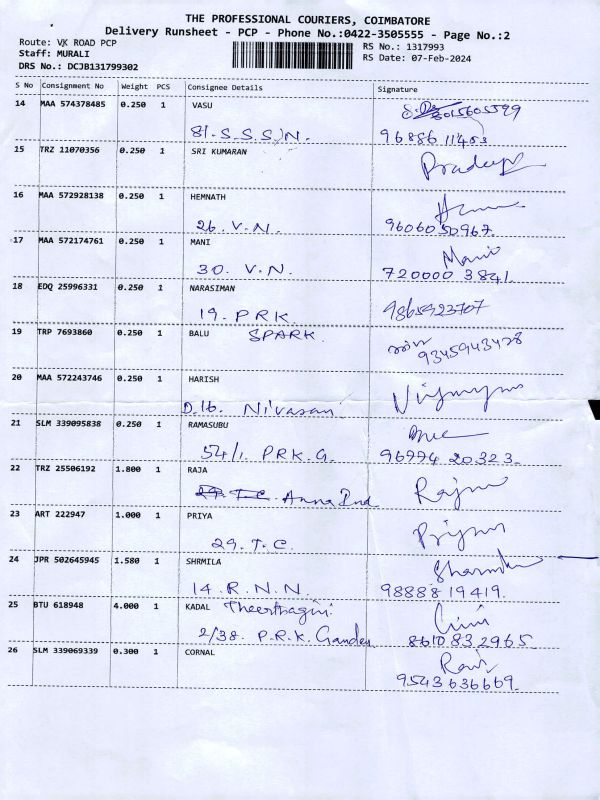 THE PROFESSIONAL COURIERS, COIMBATORE
Delivery Runsheet - PCP - Phone No.:0422-3505555 - Page No.:2
Route: VK ROAD PCP RS No.: 1317993
Staff: MURALI RS Date: 07-Feb-2024
DRS No.: DCJB131799302
S No Consignment No Weight PCS Consignee Details Signature
14 MAA 574378485 0.250 1 VASU
81. S.S.S.N. 96886 11453
15 TRZ 11070356 0.250 1 SRI KUMARAN Pradeep
16 MAA 572928138 0.250 1 HEMNATH
26. V.N. 9606050967.
17 MAA 572174761 0.250 1 MANI Mani
30. V.N. 720000 3841.
18 EDQ 25996331 0.250 1 NARASIMAN
19. PRK. 9865923707
19 TRP 7693860 0.250 1 BALU SPARK.
9345943428
20 MAA 572243746 0.250 1 HARISH
D.16. Nivasan
21 SLM 339095838 0.250 1 RAMASUBU
54/1. PRK.G. 96994 20323.
22 TRZ 25506192 1.800 1 RAJA
29. T.C. Anna Ind
23 ART 222947 1.000 1 PRIYA
29. T.C.
24 JPR 502645945 1.580 1 SHRMILA
14. R.N.N. 98888 19419.
25 BTU 618948 4.000 1 KADAL Theerthagiri
2/38. P.R.K. Garden 8610832965
26 SLM 339069339 0.300 1 CORNAL Ravi
9543636669.